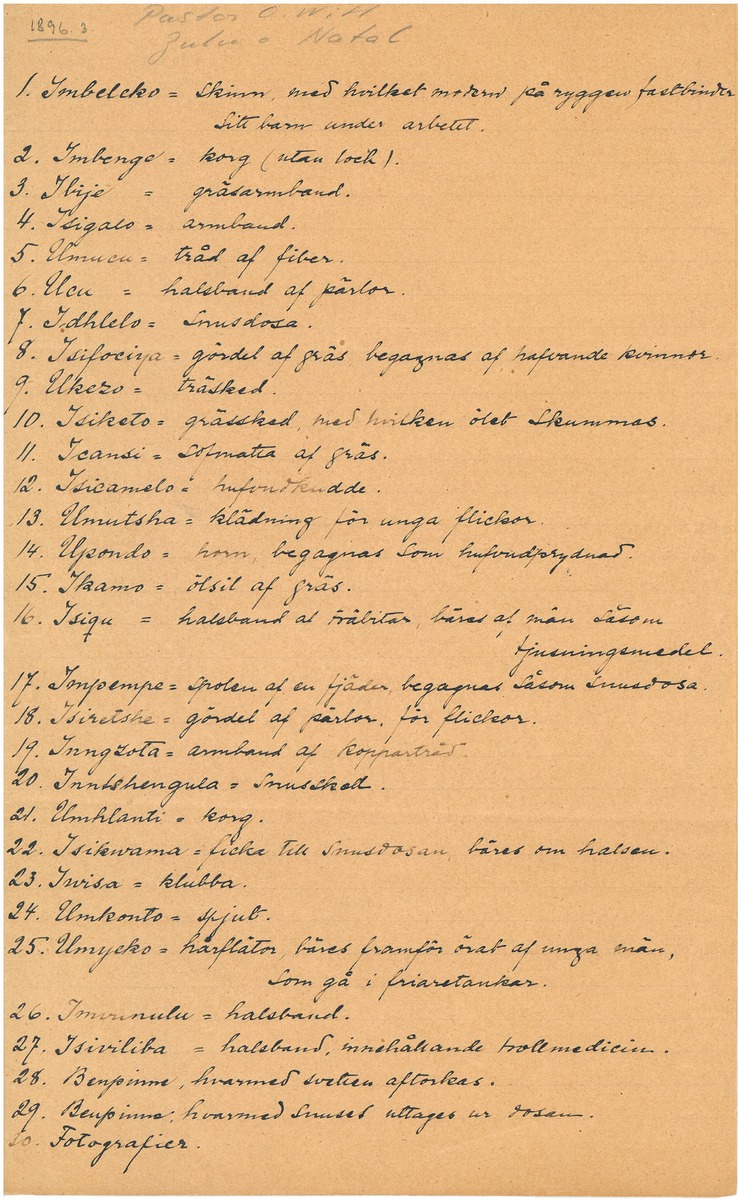 1896.3.
Pastor O. Witt
Zulu o Natal
1. Imbelcko = skinn, med hvilket modern på ryggen fastbinder
sitt barn under arbetet.
2. Imbenge = korg (utan lock).
3. Ibije = gräsarmband.
4. Isigaso = armband.
5. Umucu = tråd af fiber.
6. Ucu = halsband af pärlor.
7. Idhlelo = snusdosa.
8. Isifociya = gördel af gräs begagnas af hafvande kvinnor.
9. Ukezo = träsked.
10. Isiketo = grässked, med hvilken ölet skummas.
11. Icansi = sofmatta af gräs.
12. Isicamelo = hufvudkudde.
13. Umutsha = klädning för unga flickor.
14. Upondo = horn, begagnas som hufvudprydnad.
15. Ikamo = ölsil af gräs.
16. Isiqu = halsband af träbitar, bäres af män såsom
tjusningsmedel.
17. Impempe = spolen af en fjäder, begagnas såsom snusdosa.
18. Isiretshe = gördel af pärlor, för flickor.
19. Inngzota = armband af koppartråd.
20. Inntshengula = snussked.
21. Umhlanti = korg.
22. Isikwama = ficka till snusdosan, bäres om halsen.
23. Iwisa = klubba.
24. Umkonto = spjut.
25. Umyeko = hårflätor, bäres framför örat af unga män,
som gå i friaretankar.
26. = halsband.
27. Isiviliba = halsband, innehållande trollmedicin.
28. Benpinne, hvarmed svetten aftorkas.
29. Benpinne, hvarmed snuset uttages ur dosan.
30. Fotografier.